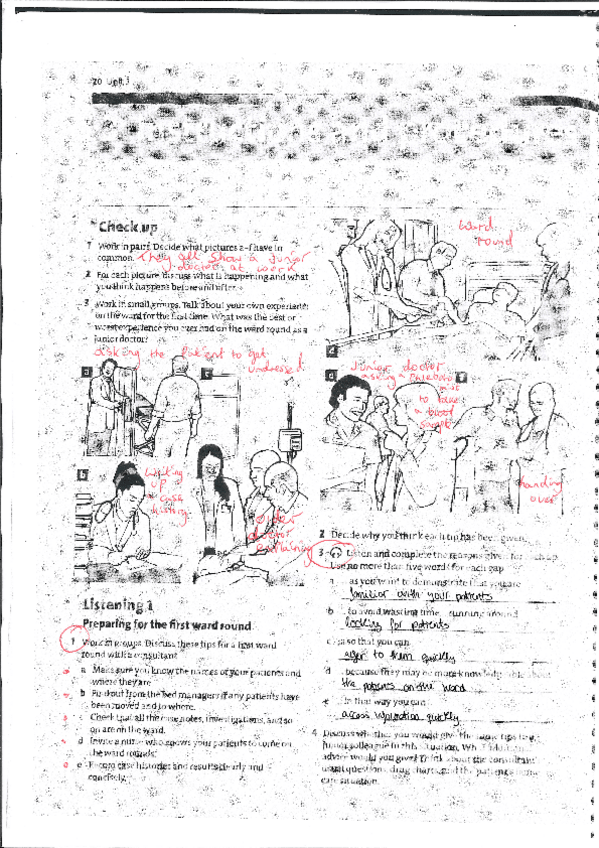 20 Unit 3
Check up
1 Work in pairs. Decide what pictures a–f have in
common. They all show a Junior
doctor at work
2 For each picture discuss what is happening and what
you think happens before and after.
3 Work in small groups. Talk about your own experience
on the ward for the first time. What was the best or
worst experience you ever had on the ward round as a
junior doctor?
asking the patient to get
undressed
a
c
b
writing
up
case
history
older
doctor
explaining
ward
round
d
Junior doctor
asking a
to take
a blood
sample
f
handing
over
Listening 1
Preparing for the first ward round
1 Work in groups. Discuss these tips for a first ward
round with a consultant.
a Make sure you know the names of your patients and
where they are.
b Find out from the bed managers if any patients have
been moved and to where.
c Check that all the case notes, investigations, and so
on are on the ward.
d Invite a nurse who knows your patients to come on
the ward rounds.
e Present case histories and results clearly and
concisely.
2 Decide why you think each tip has been given.
3 Listen and complete the reasons given for each tip.
Use no more than five words for each gap.
a as you want to demonstrate that you are
familiar with your patients
b to avoid wasting time running around
looking for patients
c so that you can
refer to them quickly
d because they may be more knowledgeable about
the patients on the ward
e in that way you can
access information quickly
4 Discuss whether you would give the same tips to a
junior colleague in this situation. What
advice would you give? Think about the consultant
usual questions, drug charts, and the patient's
care situation.